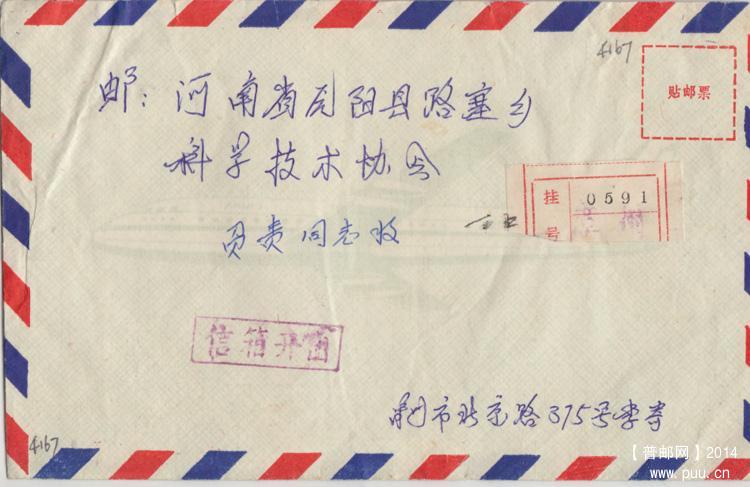 4167
贴邮票
邮：河南省原阳县路寨乡
科学技术协会
负责同志收
挂号 0591
信箱开函
市北京路375号李寄
4167
【普邮网】2014
www.puu.cn